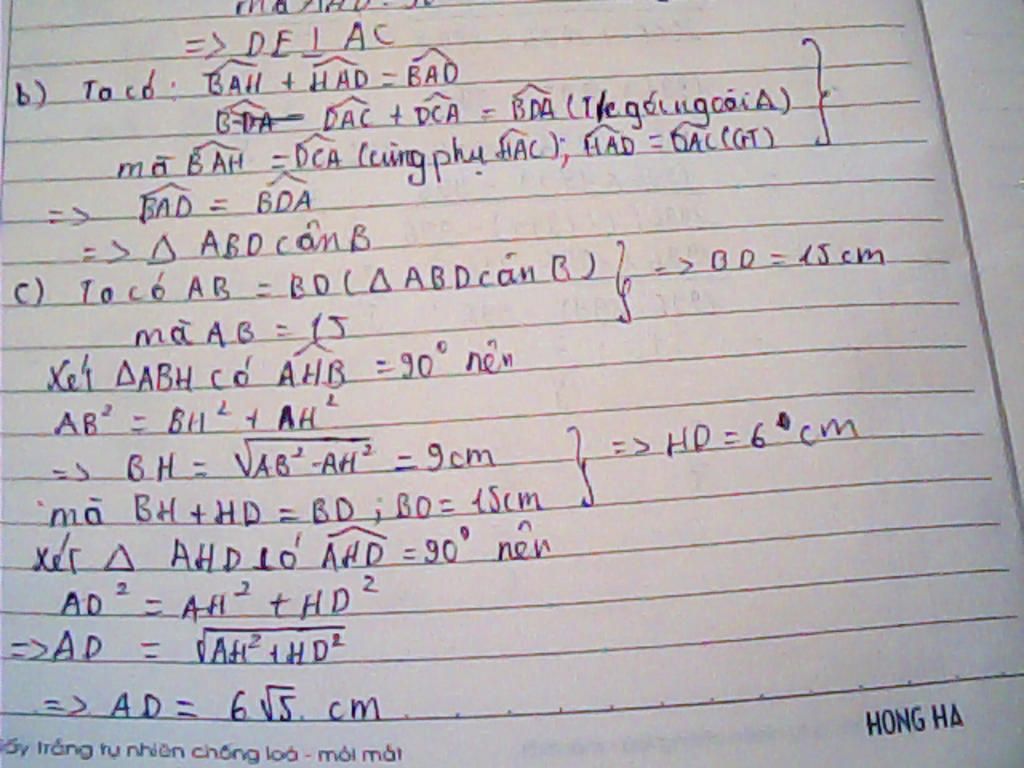 => DE ⊥ AC
b) Ta có: BAH + HAD = BAD
BDA DAC + DCA = BDA (T/c góc ngoài Δ)
mà BAH = DCA (cùng phụ HAC); HAD = DAC (GT)
=> BAD = BDA
=> Δ ABD cân B
c) Ta có AB = BD (Δ ABD cân B) } => BD = 15 cm
mà AB = 15
Xét ΔABH có AHB = 90° nên
AB² = BH² + AH²
=> BH = √AB² - AH² = 9cm } => HD = 6 cm
mà BH + HD = BD ; BD = 15cm
Xét Δ AHD có AHD = 90° nên
AD² = AH² + HD²
=> AD = √AH² + HD²
=> AD = 6√5 cm
HONG HA
Giấy trắng tự nhiên chống loá - mỏi mắt